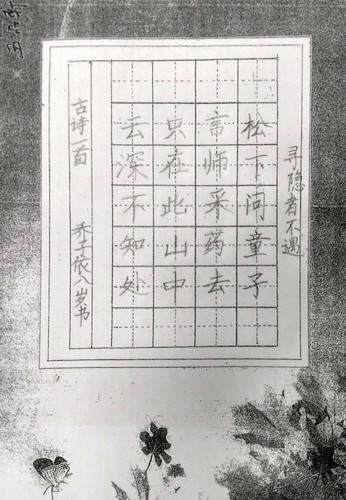 寻隐者不遇
松下问童子
言师采药去
只在此山中
云深不知处
古诗一首 乔子依八岁书